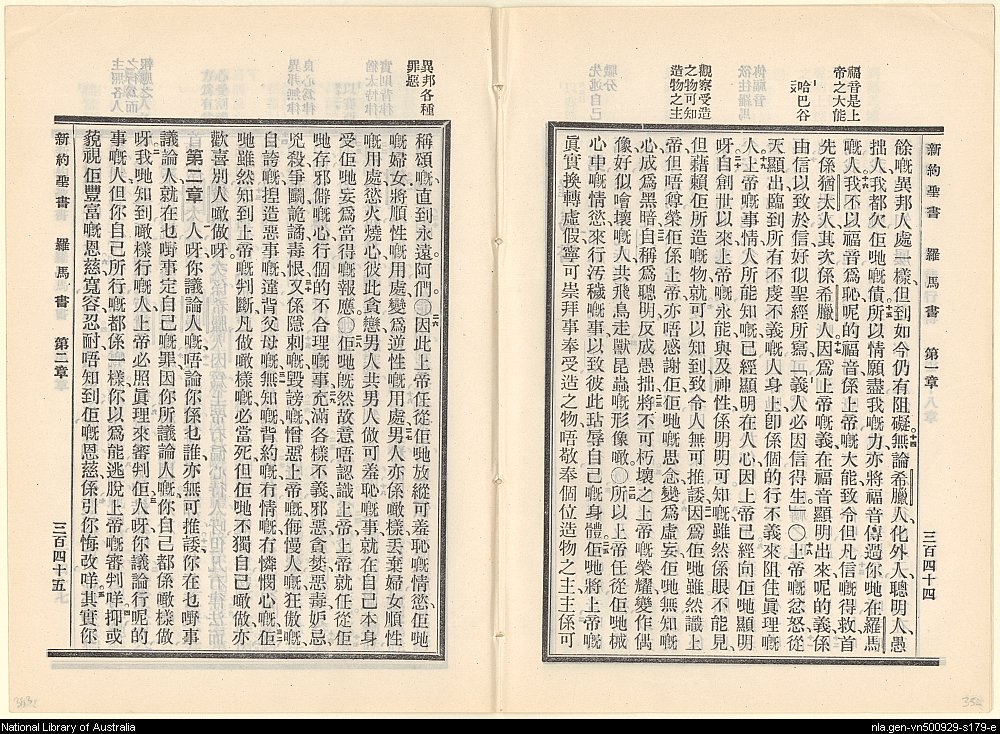 福音是上
帝之大能
哈巴谷
觀察受造
之物可知
造物之主
新約聖書 羅馬書 第一章 三百四十四
餘嘅異邦人處一樣但到如今仍有阻礙十四無論希臘人化外人聰明人愚
拙人我都欠佢哋嘅債十五所以情願盡我嘅力亦將福音傳過你哋在羅馬
嘅人十六我不以福音爲恥呢的福音係上帝嘅大能致令但凡信嘅得救首
先係猶太人其次係希臘人十七因爲上帝嘅義在福音顯明出來呢的義係
由信以致於信好似聖經所寫義人必因信得生○十八上帝嘅忿怒從
天顯出臨到所有不虔不義嘅人身上卽係個的行不義來阻住眞理嘅
人十九上帝嘅事情人所能知嘅已經顯明在人心因上帝已經向佢哋顯明
呀二十自創世以來上帝嘅永能與及神性係明明可知嘅雖然係眼不能見
但藉賴佢所造嘅物就可以知到致令人無可推諉二一因爲佢哋雖然識上
帝但唔尊榮佢係上帝亦唔感謝佢佢哋嘅思念變爲虛妄佢哋無知嘅
心成爲黑暗二二自稱爲聰明反成愚拙二三將不可朽壞之上帝嘅榮耀變作偶
像好似噲壞嘅人共飛鳥走獸昆蟲嘅形像噉○二四所以上帝任從佢哋械
心中嘅情慾來行汚穢嘅事以致彼此玷辱自己嘅身體二五佢哋將上帝嘅
眞實換轉虛假寧可崇拜事奉受造之物唔敬奉個位造物之主主係可
異邦各種
罪惡
稱頌嘅直到永遠阿們○二六因此上帝任從佢哋放縱可羞恥嘅情慾佢哋
嘅婦女將順性嘅用處變爲逆性嘅用處二七男人亦係噉樣丟棄婦女順性
嘅用處慾火燒心彼此貪戀男人共男人做可羞恥嘅事就在自己本身
受佢哋妄爲當得嘅報應○二八佢哋旣然故意唔認識上帝上帝就任從佢
哋存邪僻嘅心行個的不合理嘅事二九充滿各樣不義邪惡貪婪惡毒妒忌
兇殺爭鬬詭譎毒恨三十又係隱刺嘅毀謗嘅憎惡上帝嘅侮慢人嘅狂傲嘅
自誇嘅捏造惡事嘅違背父母嘅三一無知嘅背約嘅冇情嘅冇憐憫心嘅三二佢
哋雖然知到上帝嘅判斷凡做噉樣嘅必當死但佢哋不獨自己噉做亦
歡喜別人噉做呀
第二章一人呀你議論人嘅唔論你係乜誰亦無可推諉你在乜嘢事
議論人就在乜嘢事定自己嘅罪因你所議論人嘅你自己都係噉樣做
呀二我哋知到噉樣行嘅人上帝必照眞理來審判佢三人呀你議論行呢的
事嘅人但你自己所行嘅都係一樣你以爲能逃脫上帝嘅審判咩四抑或
藐視佢豐富嘅恩慈寬容忍耐唔知到佢嘅恩慈係引你悔改咩五其實你
新約聖書 羅馬書 第二章 三百四十五
National Library of Australia
nla.gen-vn500929-s179-e